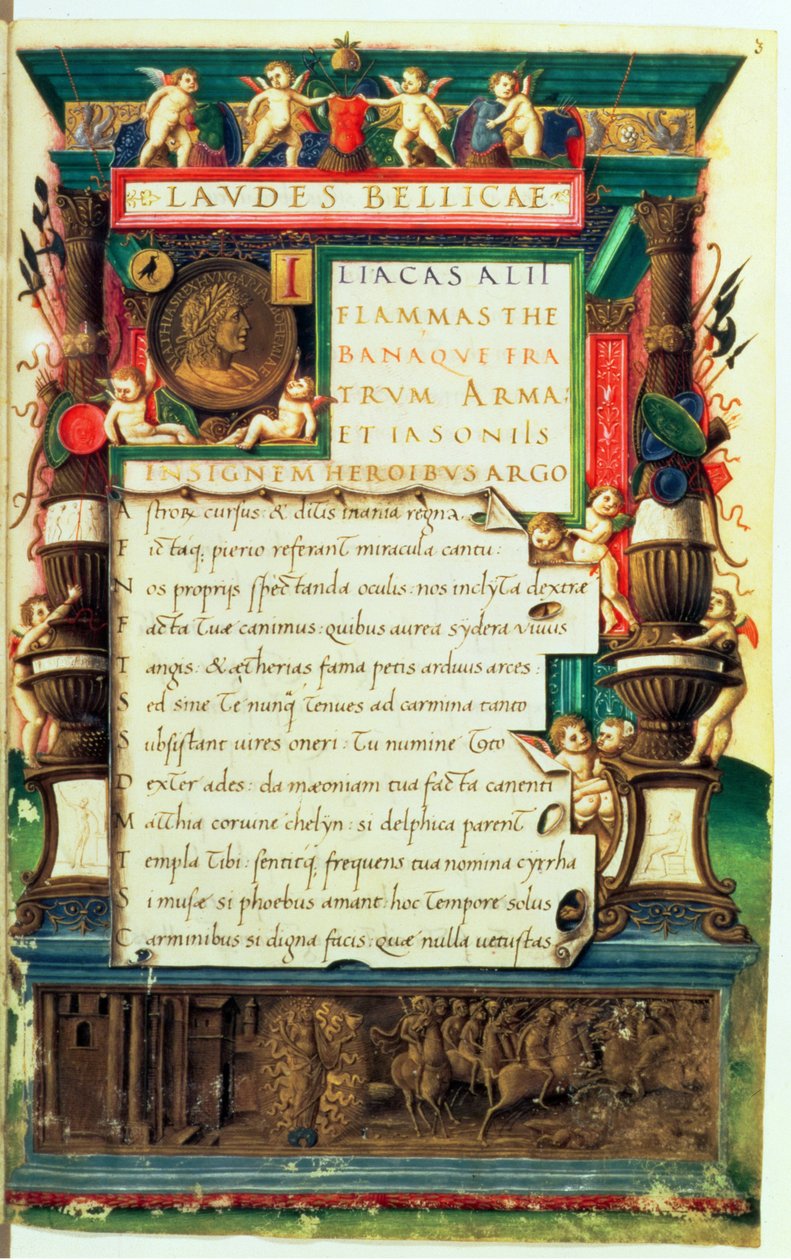 3
LAVDES BELLICAE
MATHIAS REX HVNGARIAE BOHEMIAE
ILIACAS ALII
FLAMMAS THE
BANAQVE FRA
TRVM ARMA:
ET IASONIIS
INSIGNEM HEROIBVS ARGO
Astroꝝ cursus: & ditis inania regna
Fictaq; pierio referant miracula cantu:
Nos proprijs spectanda oculis: nos inclÿta dextræ
Facta tuæ canimus: quibus aurea sÿdera vivus
Tangis: & ætherias fama petis arduus arces:
Sed sine te nunq̃ tenues ad carmina tanto
Subsistant uires oneri: tu numine toto
Dexter ades: da mæoniam tua facta canenti
Matthia coruine chelÿn: si delphica parent
Templa tibi: sentitq; frequens tua nomina cÿrrha
Si musæ si phoebus amant: hoc tempore solus
Carminibus si digna facis: quæ nulla uetustas